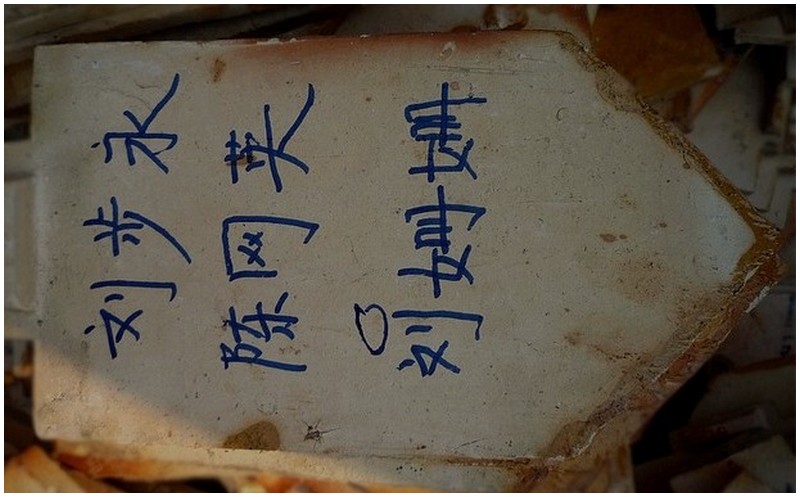 刘步永
陈网英
刘姗姗